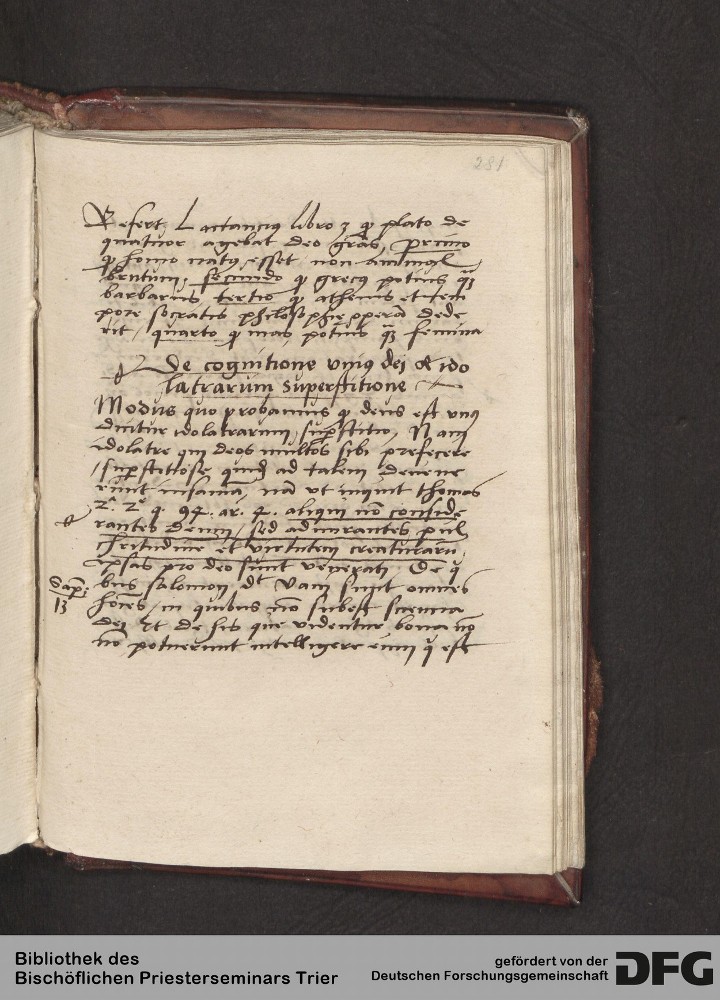 281
Refert Lactancius libro 3 ꝙ plato de
quatuor agebat deo grās, primo
ꝙ homo natus esset non animal
brutum, secundo ꝙ grecus potius q̄ꝫ
barbarus tertio ꝙ athenis et tem
pore socratis philosophie operā dede
rit, quarto ꝙ mas, potius q̄ꝫ femina
De cognitione vnius dei & ido
latrarum superstitione
Modus quo probamus ꝙ deus est vnus
idolatrarum, suꝑstitio, Nam
idolatre qui deos multos sibi prefecere
suꝑstitiose quidē ad talem devene
runt insaniā, nā vt inquit thomas
2ª. 2ᵉ q. 94. ar. 4. aliqui nō conside
rantes deum, sed admirantes pul
chritudinē et virtutem creaturarū,
ipsas pro deo sunt venerati, De q̄
bus salomon dt Vani sunt omnes
Sap:
13
hoīes, in quibus nō subest sciencia
dei Et de his que videntur bona nō
nō potuerunt intelligere eum q̄ est
Bibliothek des
Bischöflichen Priesterseminars Trier
gefördert von der
Deutschen Forschungsgemeinschaft
DFG